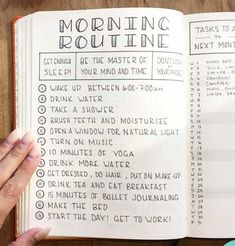 MORNING
ROUTINE
GET ENOUGH
SLEEP!
BE THE MASTER OF
YOUR MIND AND TIME
DON'T
YOUR PHONE
1 WAKE UP BETWEEN 6:00-7:00AM
2 DRINK WATER
3 TAKE A SHOWER
4 BRUSH TEETH AND MOISTURIZE
5 OPEN A WINDOW FOR NATURAL LIGHT
6 TURN ON MUSIC
7 10 MINUTES OF YOGA
8 DRINK MORE WATER
9 GET DRESSED, DO HAIR, PUT ON MAKE-UP
10 DRINK TEA AND EAT BREAKFAST
11 15 MINUTES OF BULLET JOURNALING
12 MAKE THE BED
13 START THE DAY! GET TO WORK!
TASKS TO
TO
NEXT MONT